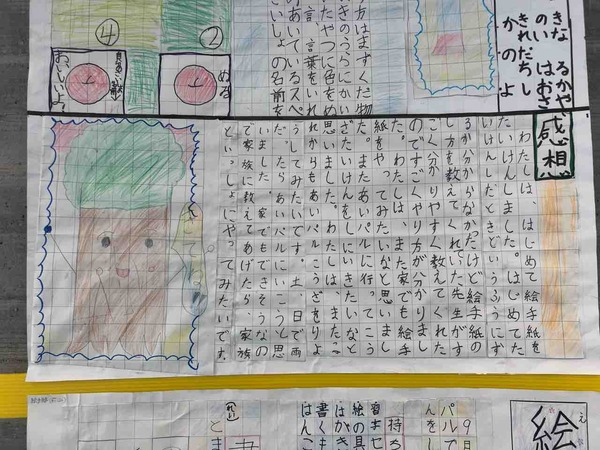 きな
のい
かの
るかや
きれだちし
はおさ
よ
方はますくだ物
いさのうらにかい
たやつに色をめ
言、言葉をいれ
のあいているスペ
こいしょの名前を
④
②
ぬる
おいしいよ
感想
わたしは、はじめて絵手紙を
たいけんしました。はじめてた
いけんしだとさどういうふうにす
るか分からなかったけど絵手紙の
し方を教えてくれいた先生がす
ごく分かりやすく教えてくれた
のですごくやり方が分かりまし
た。わたしは、また家でも絵手
紙をやってみたいなと思いまし
た。またあいパルに行ってこう
ざたいけんをしにいきたいなと
思いました。わたしは、またこ
れからもあいパルこうざをりよ
うしてみたいです。土、日で雨
だったらあいパルにいこうと思
いました。家でもできそうなの
で家族に教えてあげたら、家族
といっしょにやってみたいです。
絵
え
9日
パルで
んをし
持ち
容セ
絵の具
はがき
書くも
はんこ